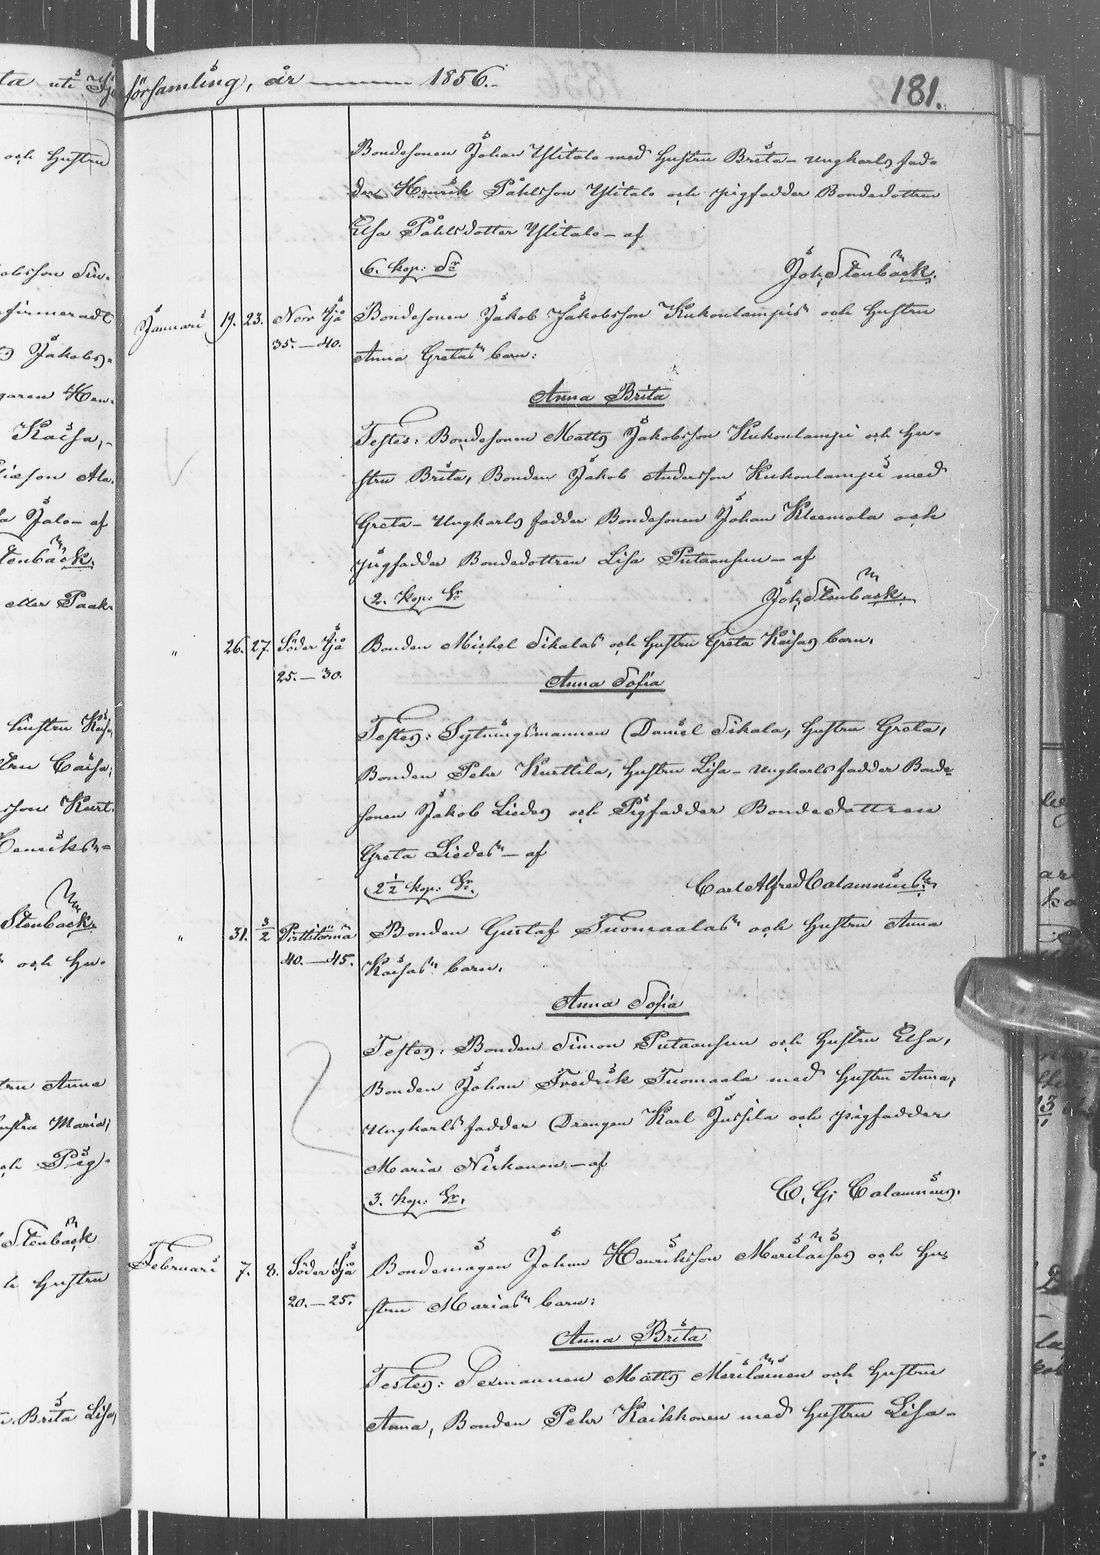 församling, år ——— 1856.
181.
Bondesonen Johan Ylitalo med hustru Brita – Ungkarls fad-
der Henrik Påhlsson Ylitalo och pigfadder Bondedottren
Elsa Påhlsdotter Ylitalo – af
6. kop: Sr Joh. Stenbäck.
Januari 19. 23. Norr Ijå Bondesonen Jakob Jakobsson Kukonlampis och hustru
35.–40. Anna Gretas barn:
Anna Brita
Testes: Bondesonen Matts Jakobsson Kukonlampi och hu-
stru Brita, Bonden Jakob Andersson Kukonlampi med
Greta – Ungkarls fadder Bondesonen Johan Kleemola och
pigfadder Bondedottren Lisa Putaansuu – af
2. kop: Sr Joh. Stenbäck.
" 26. 27. Söder Ijå Bonden Michel Sikalas och hustru Greta Kaisas barn:
25.–30. Anna Sofia
Testes: Sytningsmannen Daniel Sikala, hustru Greta,
Bonden Pehr Kurttila, hustru Lisa – Ungkarls fadder Bonde-
sonen Jakob Liedes och Pigfadder Bondedottren
Greta Liedes – af
2 1/2 kop: Sr. Carl Alfred Calamnius.
" 31. 3/2 Pirttitörmä Bonden Gustaf Tuomaalas och hustru Anna
40.–45. Kaisas barn:
Anna Sofia
Testes: Bonden Simon Putaansuu och hustru Elsa,
Bonden Johan Fredrik Tuomaala med hustru Anna,
Ungkarls fadder Drengen Karl Jussila och pigfadder
Maria Niskanen – af
3. kop: Sr. C. G. Calamnius.
Februari 7. 8. Söder Ijå Bondemågen Johan Henriksson Meriläises och hu-
20.–25. stru Marias barn:
Anna Brita
Testes: Sexmannen Matts Meriläinen och hustru
Anna, Bonden Pehr Kaikkonen med hustru Lisa –